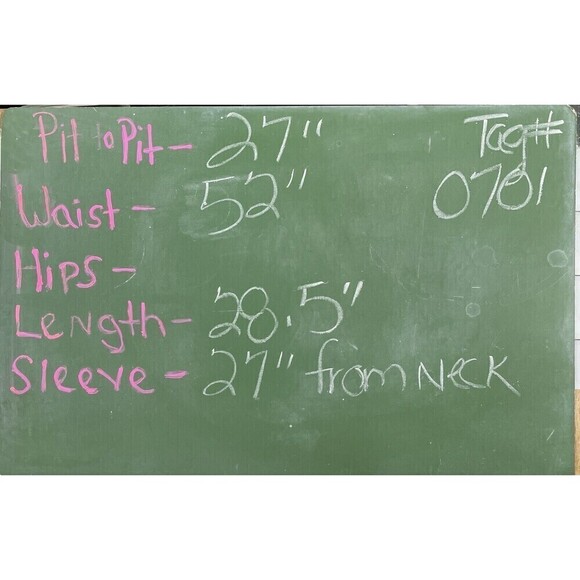 Pit to Pit - 27" Tag#
Waist - 52" 0701
Hips -
Length - 28.5"
Sleeve - 27" from Neck